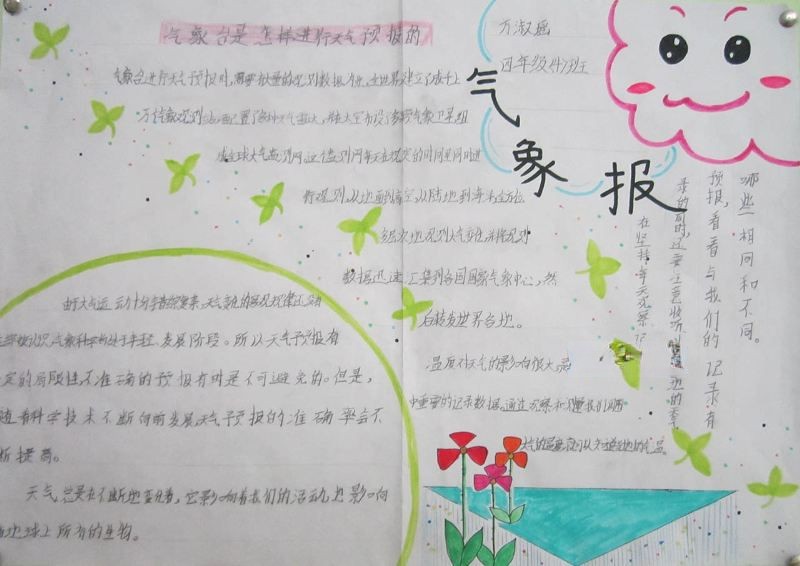 气象台是怎样进行天气预报的
气象台进行天气预报时,需要大量的观测数据
万个气象观测站,配置了各种天气雷达,
成全球大气监测网,这个监测网每天在规定的时间里同时进
行观测,从地面到高空,从陆地到海洋全方位
多层次地观测大气变化,并将观测
数据迅速汇集到各国国家气象中心,然
后转发世界各地。
由于大气运动十分复杂,天气变化的客观规律还没有
气象科学尚处于年轻、发展阶段。所以天气预报有
定的局限性,不准确的预报有时是不可避免的。但是,
随着科学技术不断向前发展,天气预报的准确率会不
断提高。
天气总是在不断地变化着,它影响着我们的活动,也影响
地球上所有的生物。
温度对天气的影响很大,是
中重要的记录数据,通过观察和测量我们
万淑瑶
四年级
气象报
在坚持每天观察
录的同时,还要注意收听
预报,看看与我们的记录有
哪些相同和不同。